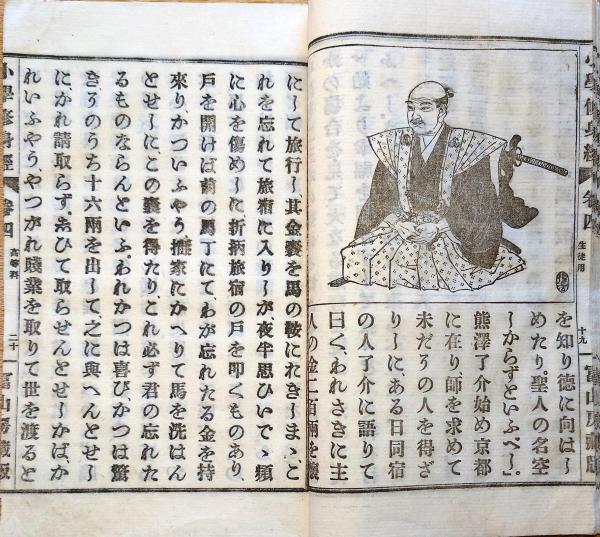 小學修身經
卷四
生徒用
十九
冨山房藏版
を知り德に向は〜
めたり。聖人の名空
〜からずといふべ〜」。
熊澤了介始め京都
に在り師を求めて
未だうの人を得ざ
り〜に、ある日同宿
の人了介に語りて
曰く、われさきに主
人の金二百兩を懷
に〜て旅行〜其金嚢を馬の鞍におき〜まゝこ
れを忘れて旅宿に入り〜が、夜半思ひいでゝ頻
に心を傷め〜に折柄旅宿の戸を叩くものあり、
戸を開けば前の馬丁にて、わが忘れたる金を持
來り、かついふやう、僕家にかへりて馬を洗はん
とせ〜に、この嚢を得たり、これ必ず君の忘れた
るものならんといふ。われかつは喜び、かつは驚
き、うのうち十六兩を出〜て、之に與へんとせ〜
に、かれ請取らず。志ひて取らせんとせ〜かばか
れいふやうやつがれ賤業を取りて世を渡ると
小學修身經
卷四
高等科
二十
冨山房藏版